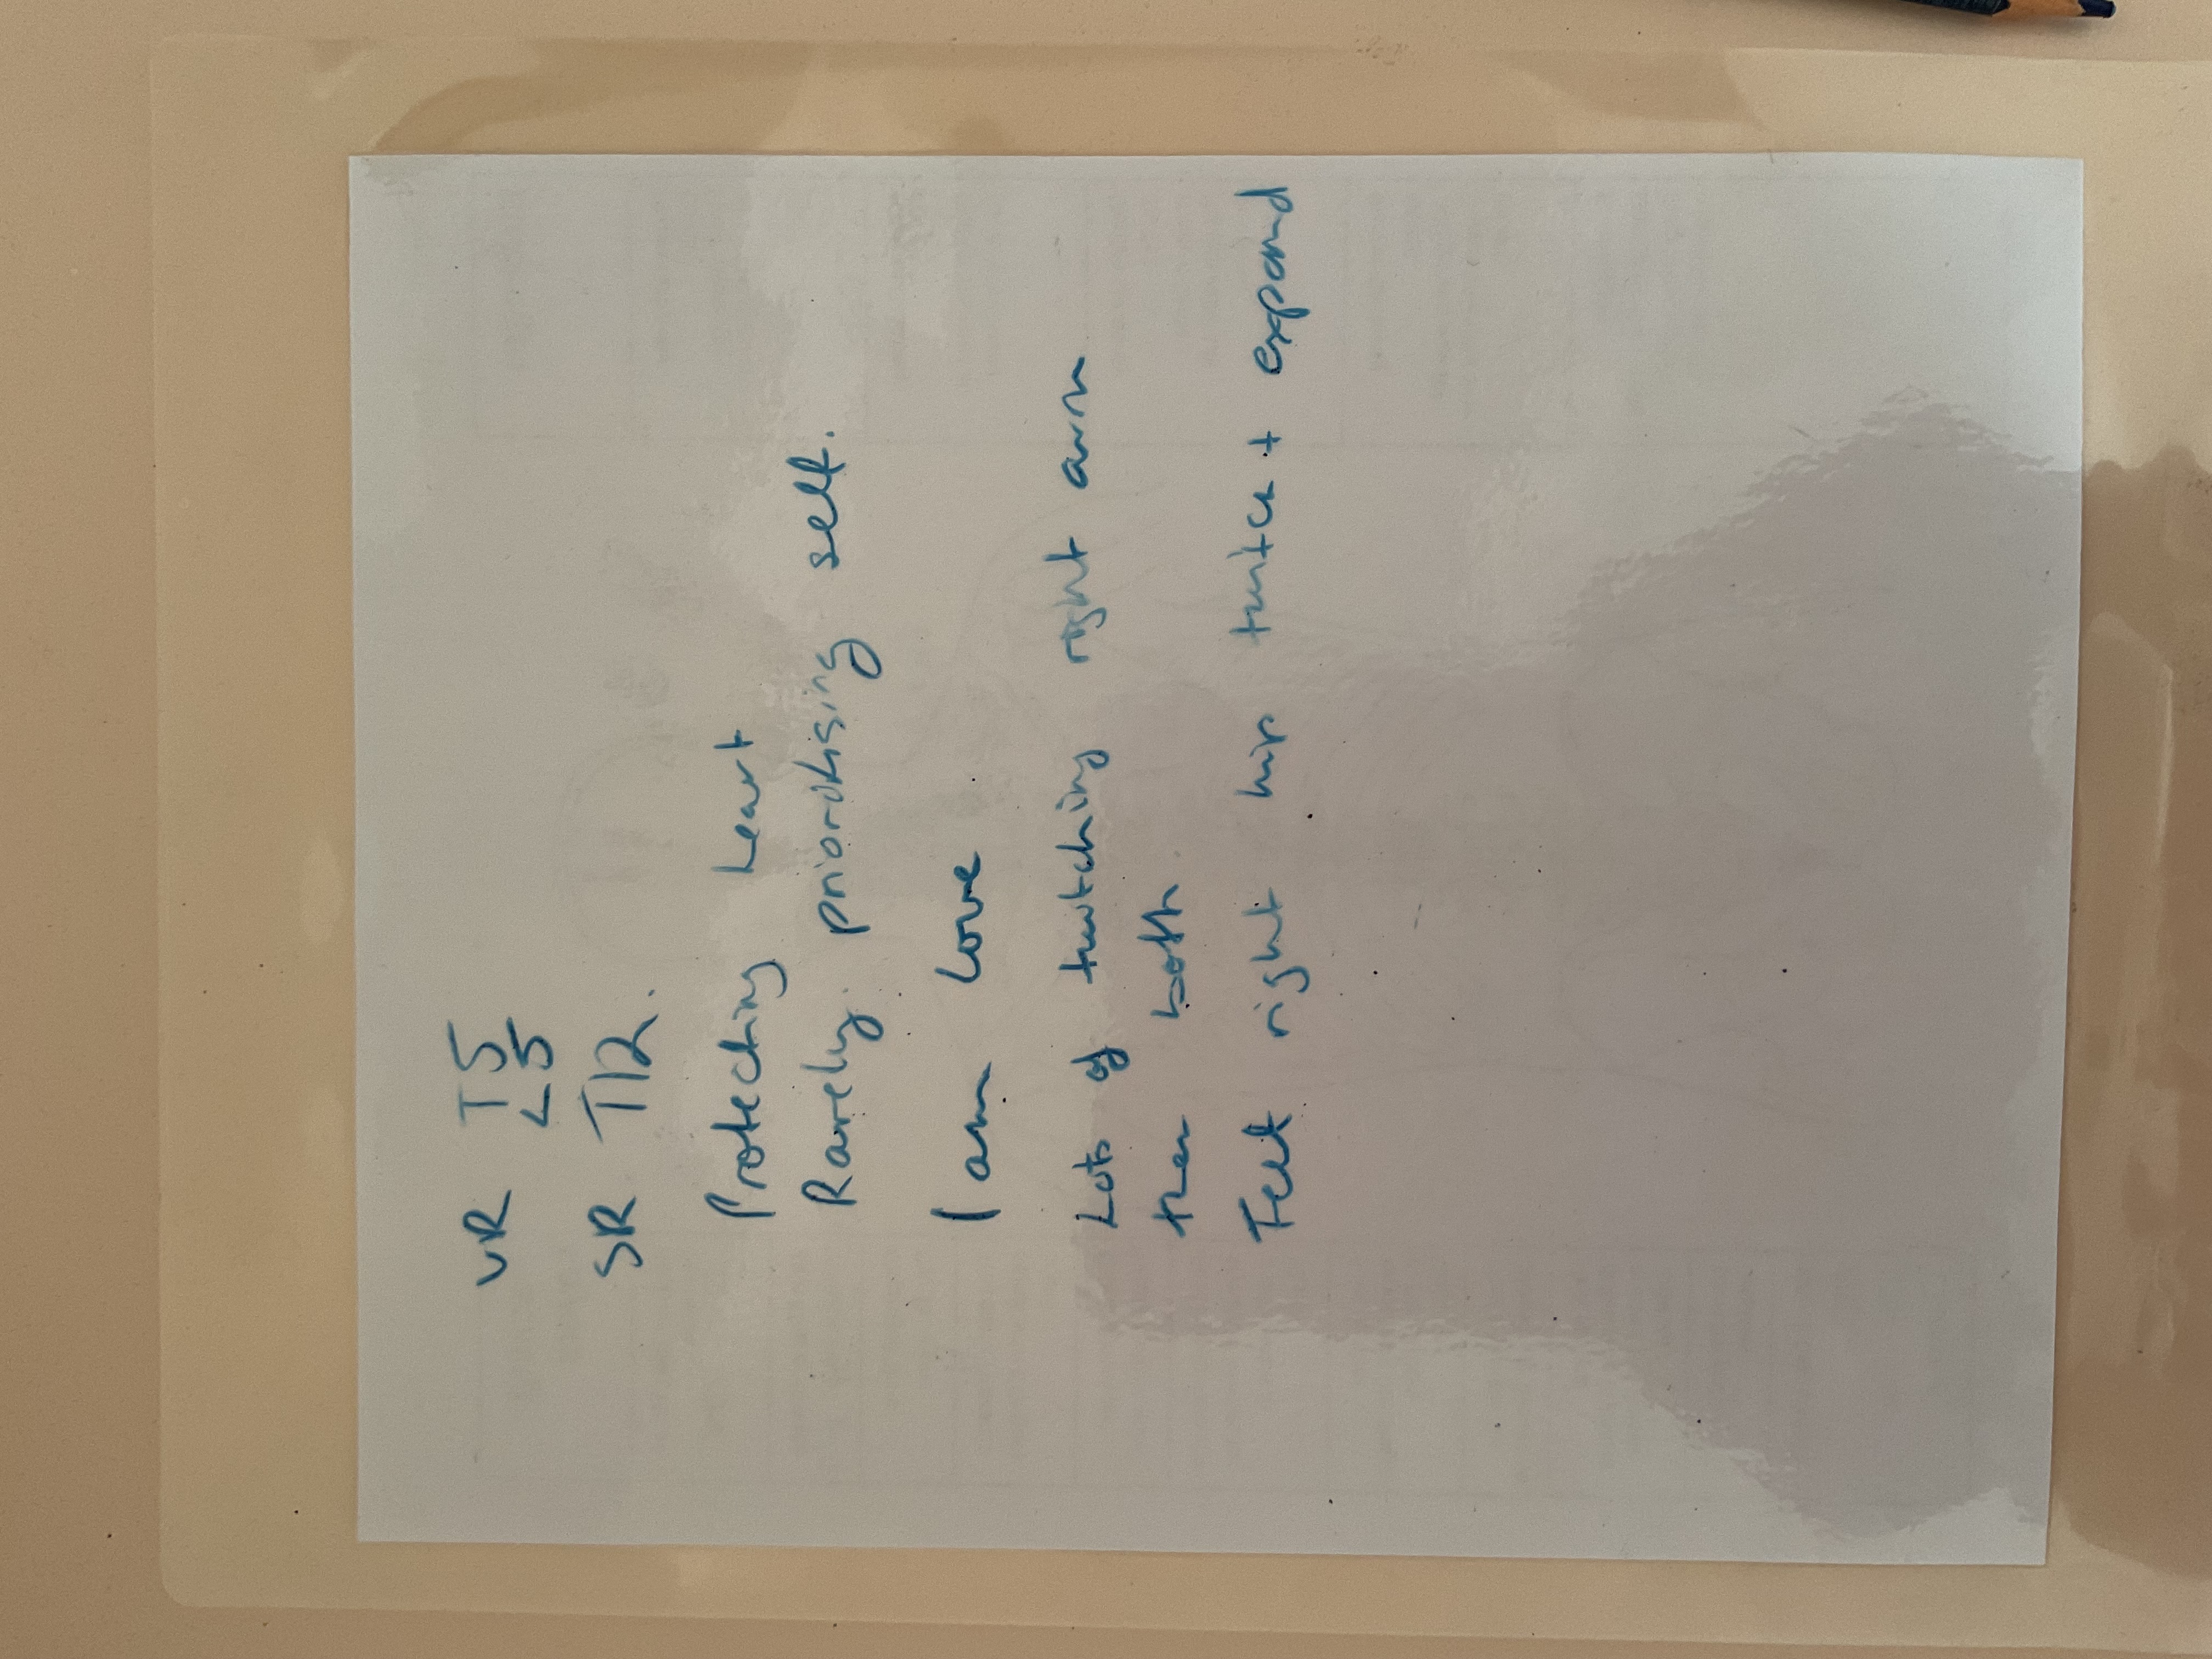 VR T5
L5
SR T12.
Protecting heart
Rarely prioritising self.
I am love
Lots of twitching right arm
then both.
Felt right hip twitch + expand